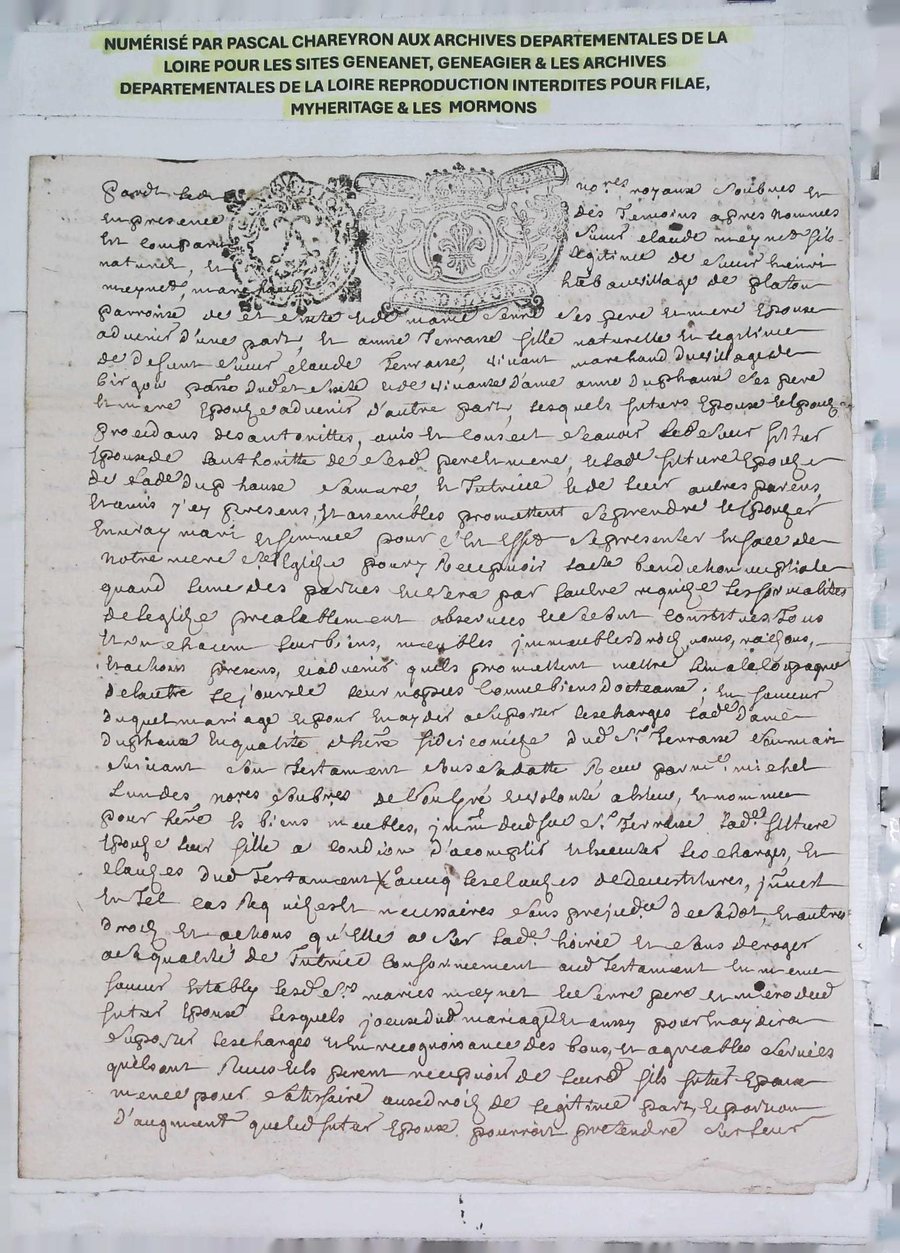 NUMÉRISÉ PAR PASCAL CHAREYRON AUX ARCHIVES DEPARTEMENTALES DE LA
LOIRE POUR LES SITES GENEANET, GENEAGIER & LES ARCHIVES
DEPARTEMENTALES DE LA LOIRE REPRODUCTION INTERDITES POUR FILAE,
MYHERITAGE & LES MORMONS
G. D. LYON
pardt nores royaux soubnes et
en presence des temoins apres nommes
Et comparu sieur claude meynet fils
naturel, et legitime de sieur henri
meynet, marchand hab au village de platon
parroisse de et marie ses pere et mere Epoux
advenir d'une part, et annie Terrasse fille naturelle et legitime
de defunt sieur claude Terrasse, vivant marchand du village de
parse dud et vivante dame anne duphaux ses pere
et mere Epouze advenir d'autre part, lesquels futurs Epoux et Epouze
procedans des authorittes, avis et conseil scavoir led sieur futur
Epoux de lauthoritte de sesd pere et mere, et lade future Epouze
de lade duphause sa mere, et Tutrice et de leur autres parens
et amis y'ey presens, et assembles promettent se prendre et Epouzer
en vray mari et femme pour cet effet se presenter en face de
notre mere Ste Eglize pour y Recepvoir la benediction nuptiale
quand lune des parties en sera par lautre requize les formalites
de leglize prealablement observees constitues tous
et un chacun leur biens, meubles immeubles droits, noms, raisons,
et actions presens, et advenir quils promettent mettre
de lautre le jour de leur nopces comme biens doctaux; En faveur
duquel mariage et pour en ayder a suporter les charges lade Dame
duphaux en qualite d'here fideicomise dud Sr Terrasse son mari
suivant son Testament sous sa datte Receu par me michel
lun des nores soubnes de son gré et volonté a eslu, et nomme
pour here es biens meubles, imm dud feu Sr Terrasse lade future
Epouze leur fille a condion d'acomplir et executer les charges, et
clauzes dud Testament avecq les clauzes de
en tel cas Req necessaires sans prejudice de sa dot, et autres
droits et actions qu'Elle a sur lade hoirie et sans deroger
a sa qualité de Tutrice conformement aud Testament En meme
faveur establys lesd maries meynet pere et mere dud
futur Epoux lesquels mariage et aussy pour en ayder a
suporter les charges et en recognoissance des bons, et agreables services
quils ont Receus de leurd fils futur Epoux
pour satisfaire aux droits de legitime part, et portion
d'augment que led futur Epoux pourroit pretendre sur leur